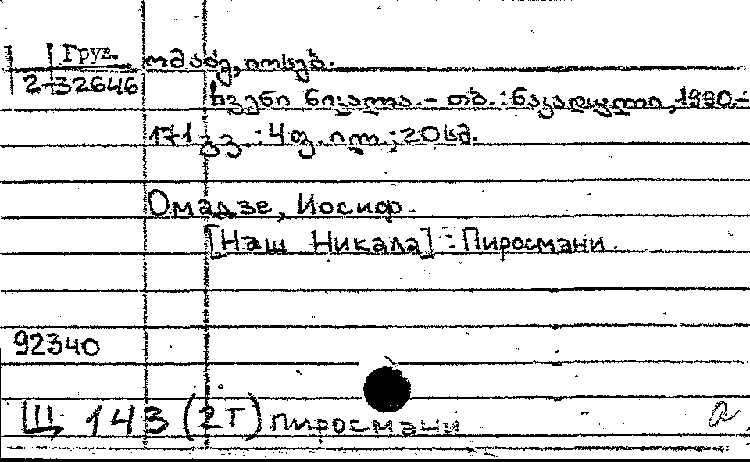 Груз. ომაძე, იოსებ.
2-32646
ჩვენი ნიკალა. – თბ. : ნაკადული, 1990. –
171 გვ. : 4 ფ. ილ. ; 20 სმ.
Омадзе, Иосиф.
[Наш Никала] : Пиросмани.
92340
Щ 143 (2Г) Пиросмани
a